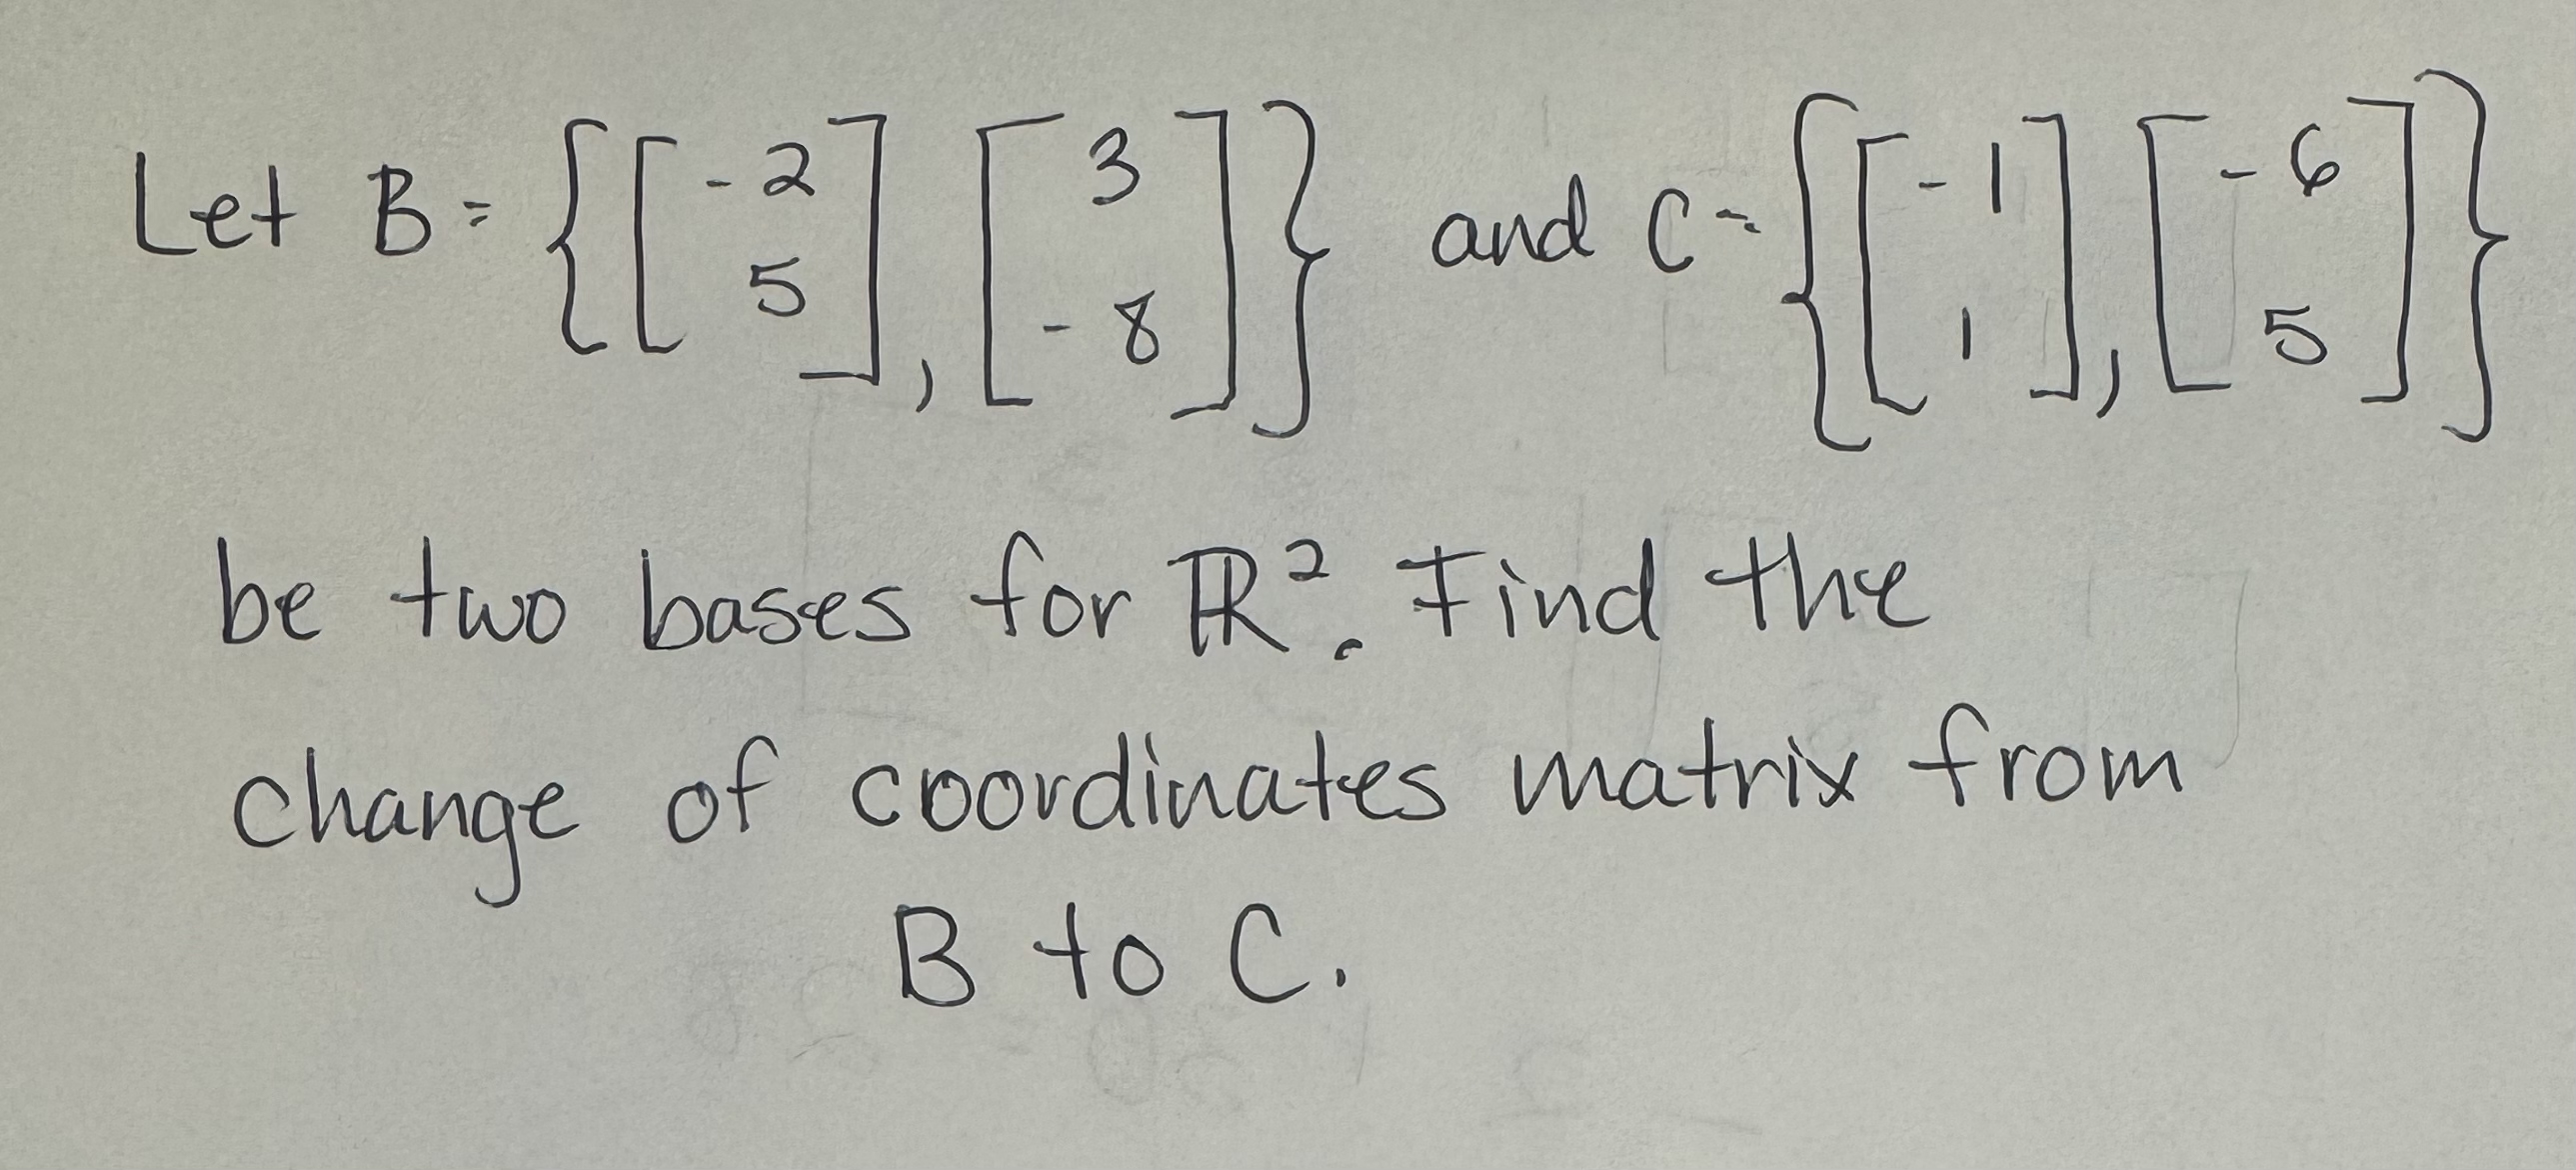 Let B = {[-2 5], [3 -8]} and C = {[-1 1], [-6 5]}
be two bases for ℝ². Find the
change of coordinates matrix from
B to C.